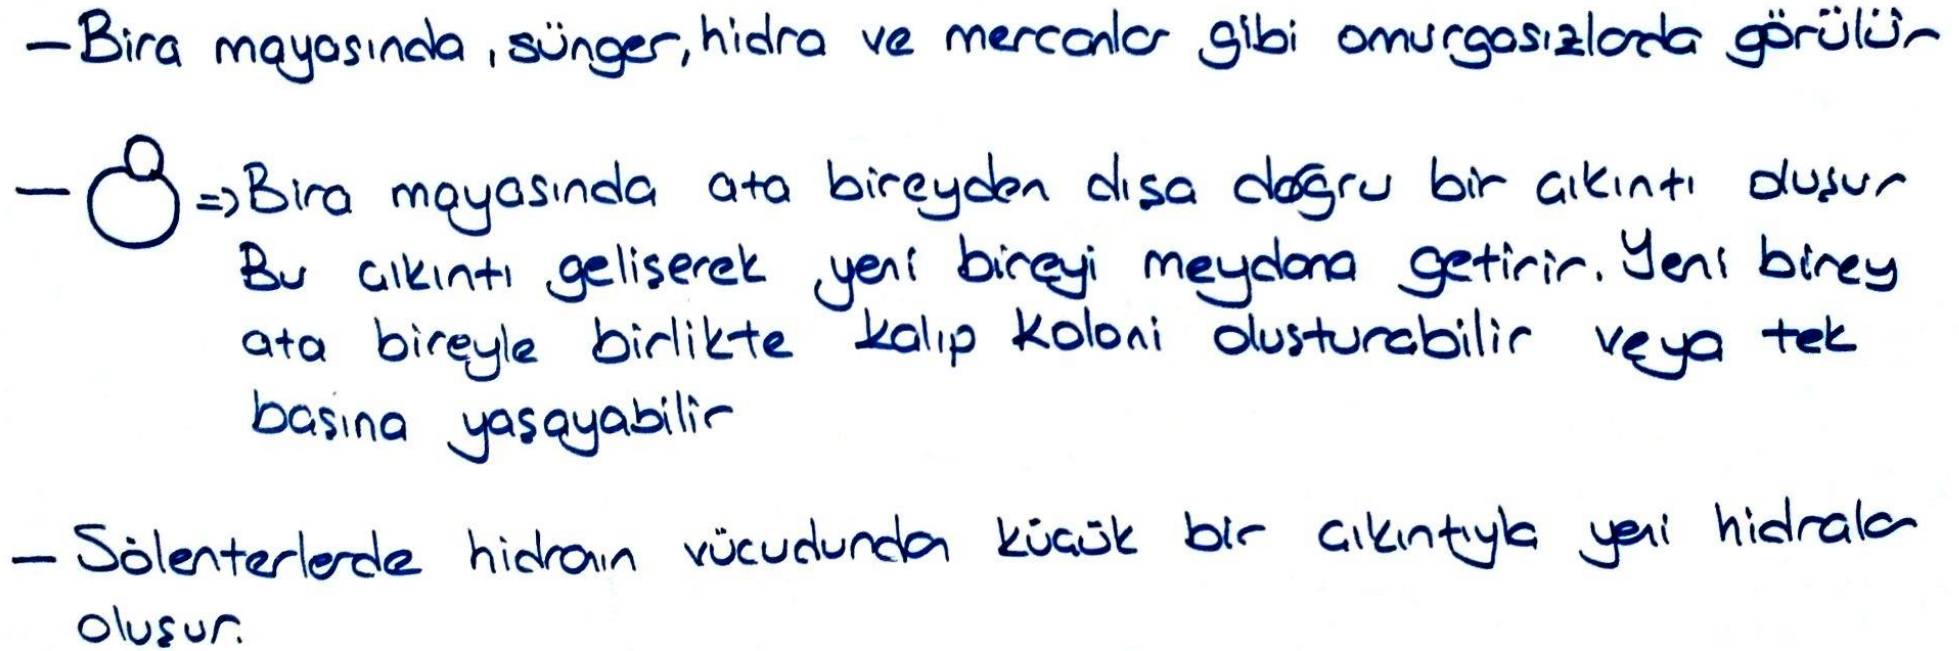 - Bira mayasında, sünger, hidra ve mercanlar gibi omurgasızlarda görülür
- => Bira mayasında ata bireyden dışa doğru bir çıkıntı oluşur
Bu çıkıntı gelişerek yeni bireyi meydana getirir. Yeni birey
ata bireyle birlikte kalıp koloni oluşturabilir veya tek
başına yaşayabilir
- Sölenterlerde hidranın vücudundan küçük bir çıkıntıyla yeni hidralar
oluşur.